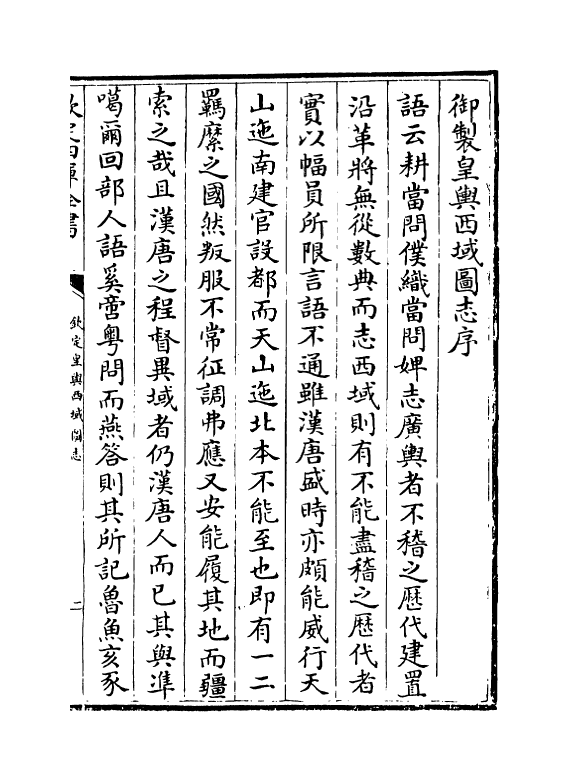 御製皇輿西域圖志序
語云耕當問僕織當問婢志廣輿者不稽之歷代建置
沿革將無從數典而志西域則有不能盡稽之歷代者
實以幅員所限言語不通雖漢唐盛時亦頗能威行天
山迤南建官設都而天山迤北本不能至也即有一二
羈縻之國然叛服不常征調弗應又安能履其地而疆
索之哉且漢唐之程督異域者仍漢唐人而已其與準
噶爾回部人語奚啻粵問而燕答則其所記魯魚亥豕
欽定四庫全書
欽定皇輿西域圖志
二